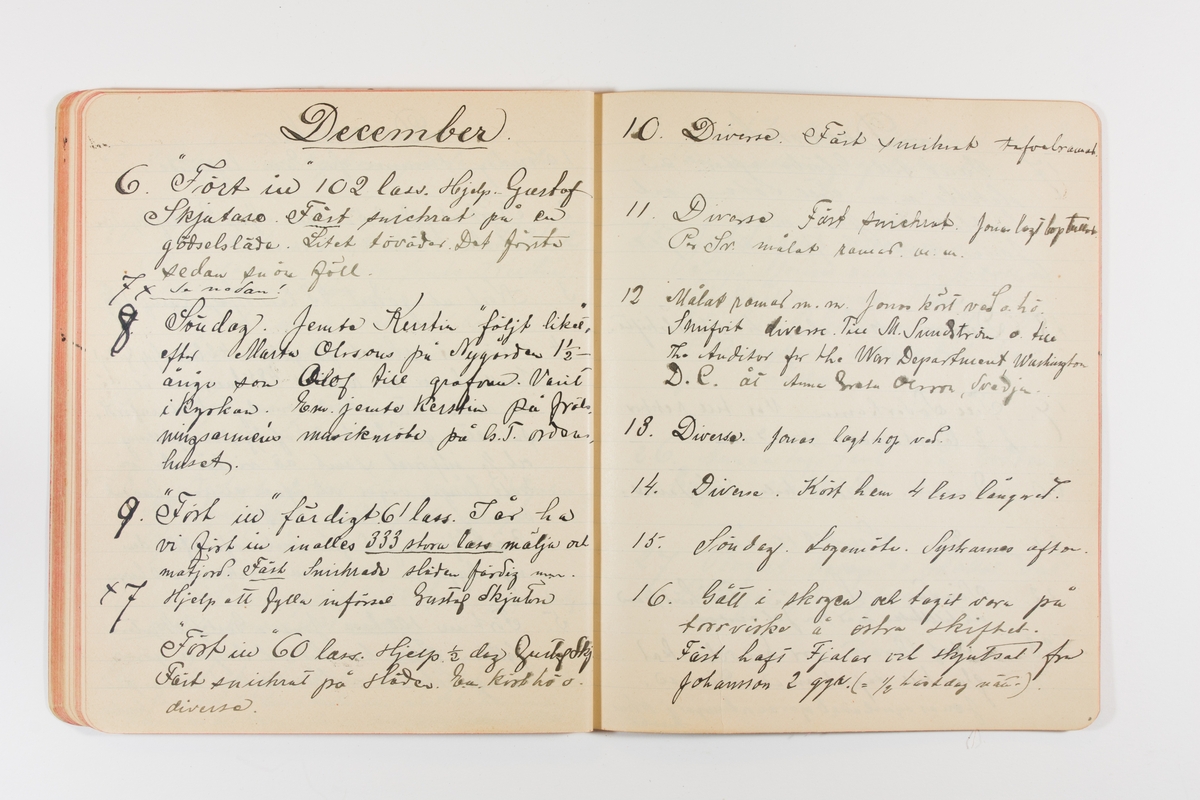 December.
6. "Fört in" 102 lass. Hjelp. Gustaf
Skjutare. Fäst snickrat på en
gödselsläde. Litet töväder. Det första
sedan snön föll.
7 x Se nedan!
8 Söndag. Jemte Kerstin "följt likét,
efter Marta Olssons på Nygården 1½-
årige son Oilof till grafven. Varit
i kyrkan. Em. jemte Kerstin på fräls-
ningsarmeén musikmöte på G.T. ordens-
huset.
9. "Fört in" färdigt 61 lass. I år ha
vi fört in inalles 333 stora lass mälja och
matjord. Fäst Snickrade släden färdig
x 7 Hjelp att fylla införsel Gustaf Skjutare
"Fört in" 60 lass. Hjelp ½ dag Gustaf Skj
Fäst snickrat på släden. Em. kört hö o.
diverse.
10. Diverse. Fäst snickrat
11. Diverse Fäst snickrat. Jonas lagt hop
Per Sr. målat ramar. m. m.
12 Målat ramar m. m. Jonas kört ved o. hö.
Skrifvit diverse. Till M. Sundström o. till
The Auditor for the War Department Washington
D. C. åt Anna Greta Olsson, Svedja.
13. Diverse. Jonas lagt hop ved.
14. Diverse. Kört hem 4 lass långved.
15. Söndag. Logemöte. Systrarnes afton.
16. Gått i skogen och tagit vara på
torrvirke å östra skiftet.
Fäst haft Fjalar och skjutsat fru
Johansson 2 ggr. (= ½ hästdag